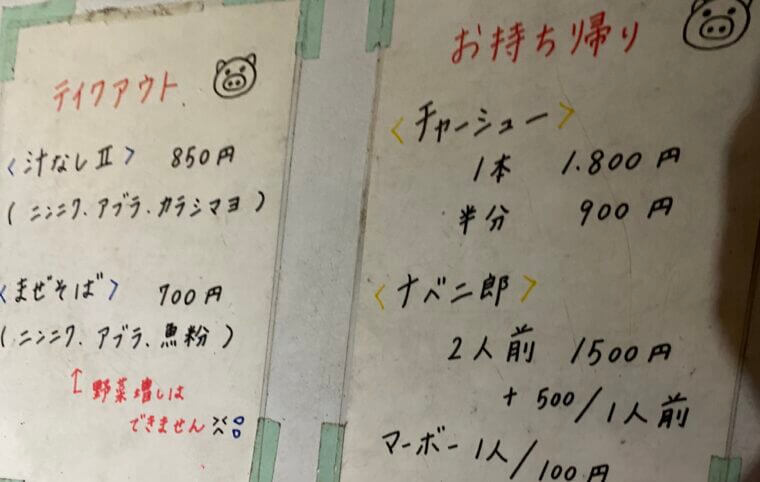 テイクアウト
<汁なしⅡ> 850円
(ニンニク、アブラ、カラシマヨ)
<まぜそば> 700円
(ニンニク、アブラ、魚粉)
↑野菜増しは
できません
お持ち帰り
<チャーシュー>
1本 1.800円
半分 900円
<ナベ二郎>
2人前 1500円
+500/1人前
マーボー1人/100円